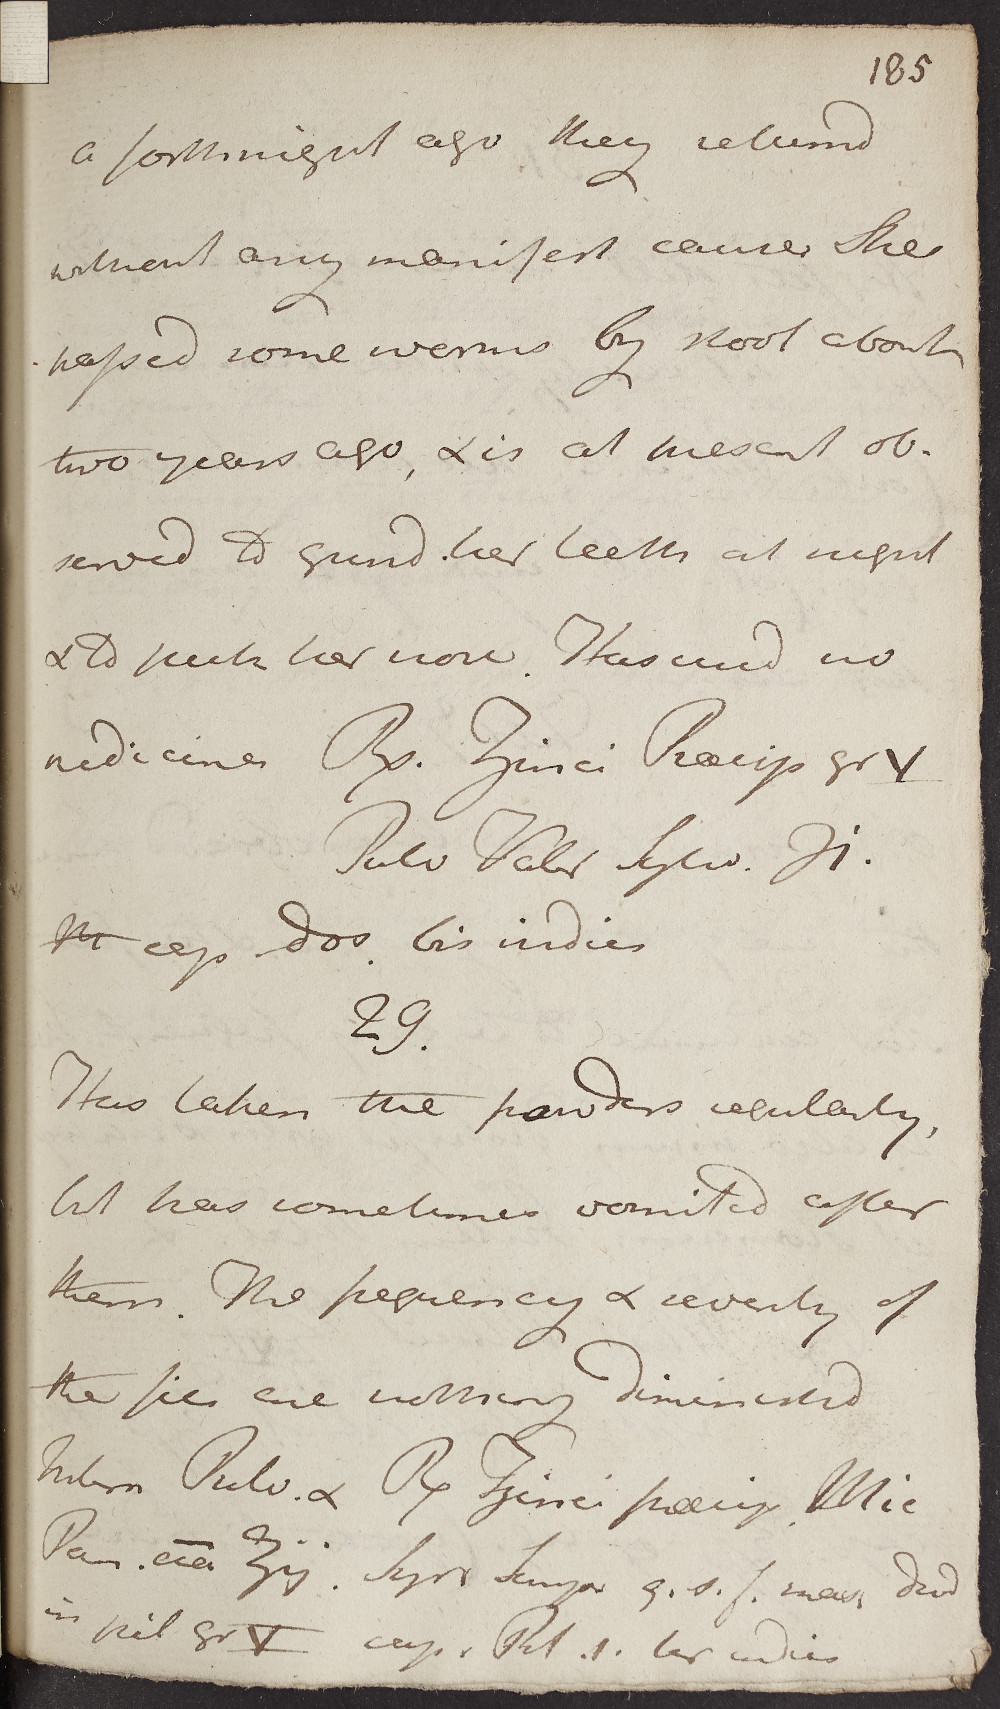 185
a forthnight ago they returnd
without any manifest cause. She
passed some worms by stool about
two years ago, & is at present ob-
served to grind her teeth at night
& to pick her nose. Has used no
medicines Rx. Zinci Præcip gr V
Pulv Valer Sylv. ʒi.
M cap dos. bis indies
29.
Has taken the powders regularly,
but has sometimes vomited after
them. The frequency & severity of
the fits are nothing diminished
Intern Pulv. & Rx Zinci præcip. Mic
Pan. aa ʒij. Syr q. s. f. mass divid
in pil gr V cap. Pil .1. ter indies